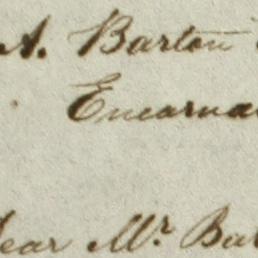 A. Barton
Encarna
Dear Mr. Bar